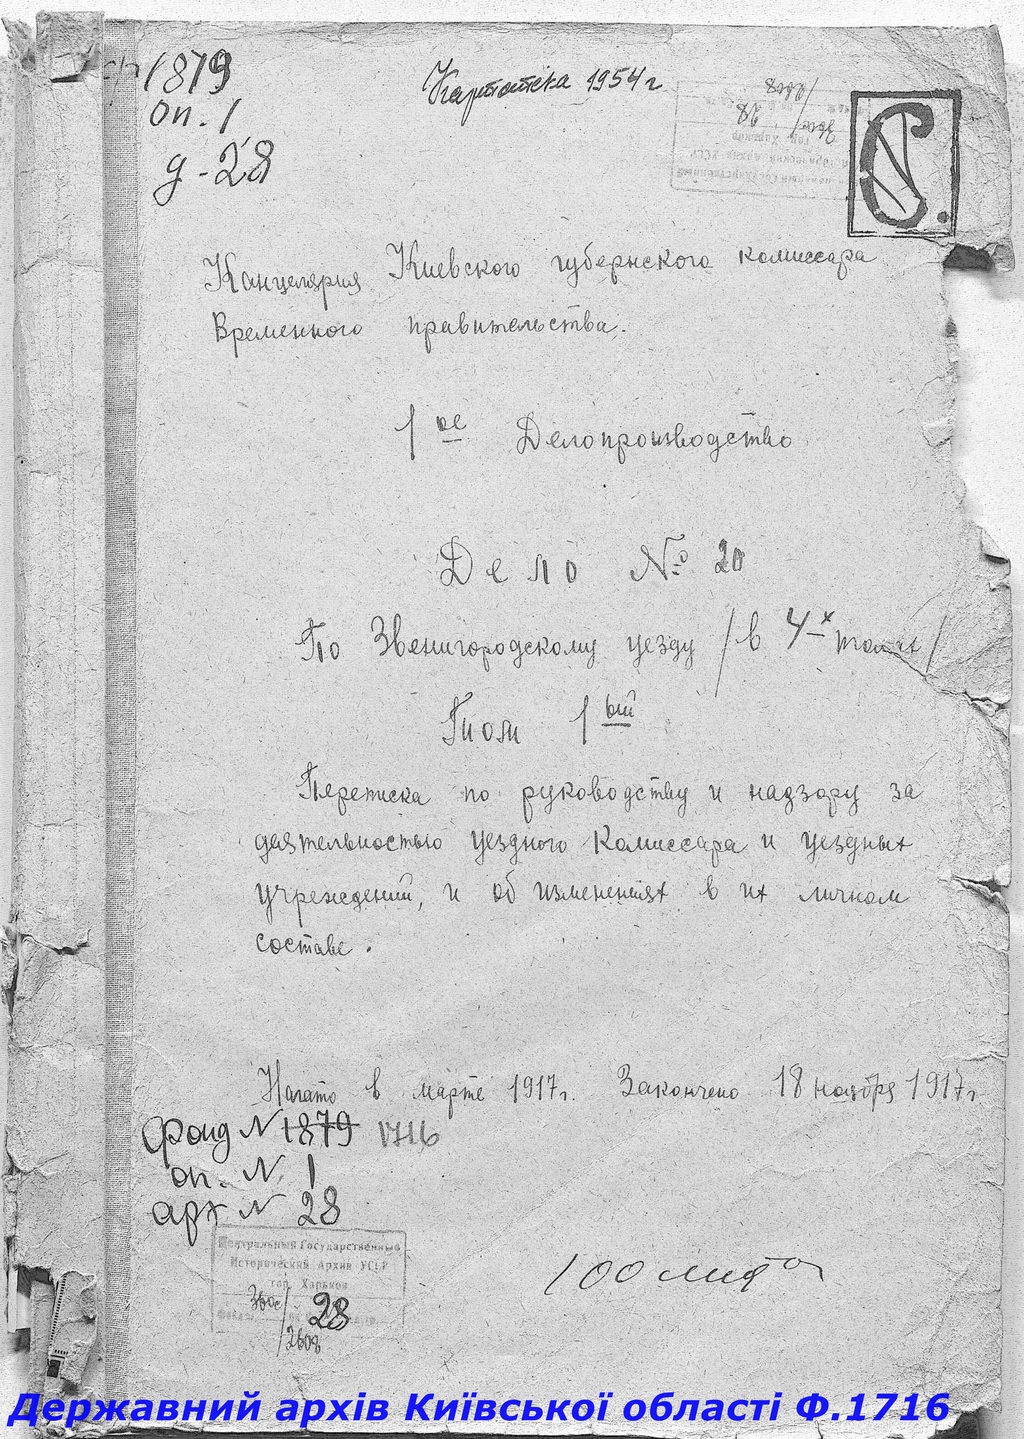 1879
оп. 1
д-28
Картотека 1954 г
Канцелярия Киевского губернского комиссара
Временного правительства.
1ое Делопроизводство
Дело № 20
По Звенигородскому уезду /в 4х томах/
Том 1ый
Переписка по руководству и надзору за
деятельностью уездного Комиссара и уездных
учреждений, и об изменениях в их личном
составе.
Начато в марте 1917г. Закончено 18 ноября 1917г.
фонд N 1879 1716
оп. N. 1
арх N 28
Центральный Государственный
Исторический Архив УССР
гор. Харьков
28
2608
100 листо
Державний архів Київської області Ф.1716